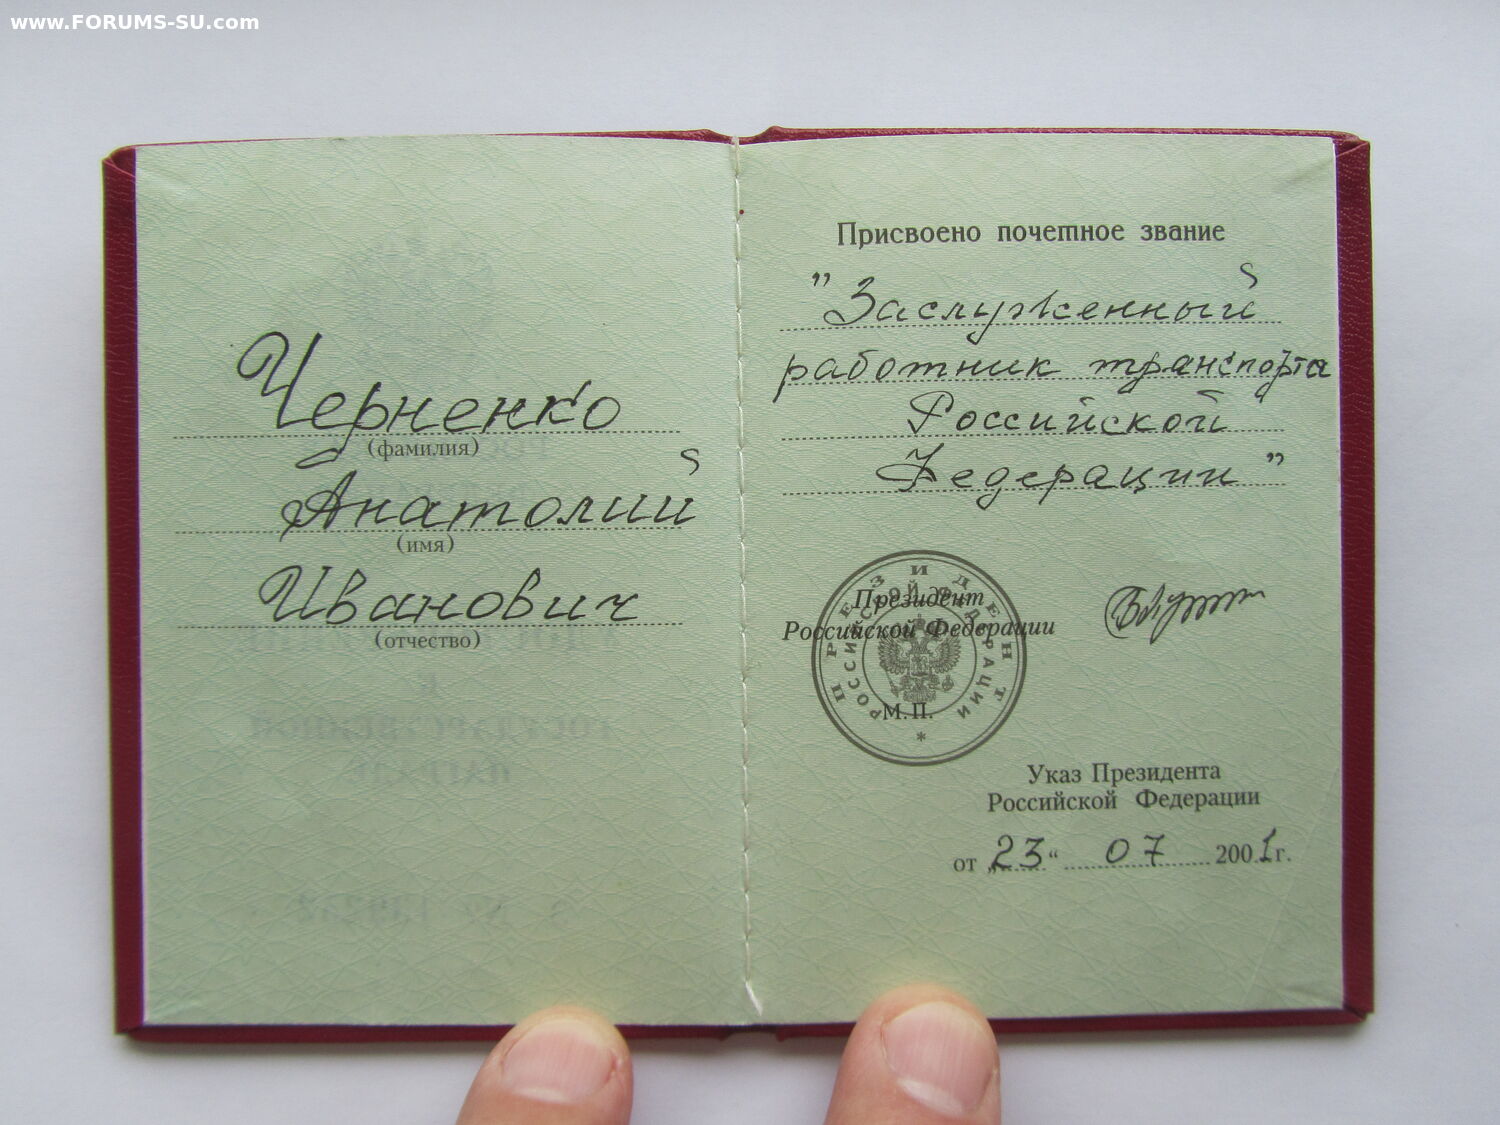 www.FORUMS-SU.com
Черненко
(фамилия)
Анатолий
(имя)
Иванович
(отчество)
Присвоено почетное звание
"Заслуженный
работник транспорта
Российской
Федерации"
Президент
Российской Федерации
ПРЕЗИДЕНТ
РОССИЙСКОЙ ФЕДЕРАЦИИ
М.П.
*
Указ Президента
Российской Федерации
от „23“ 07 2001г.